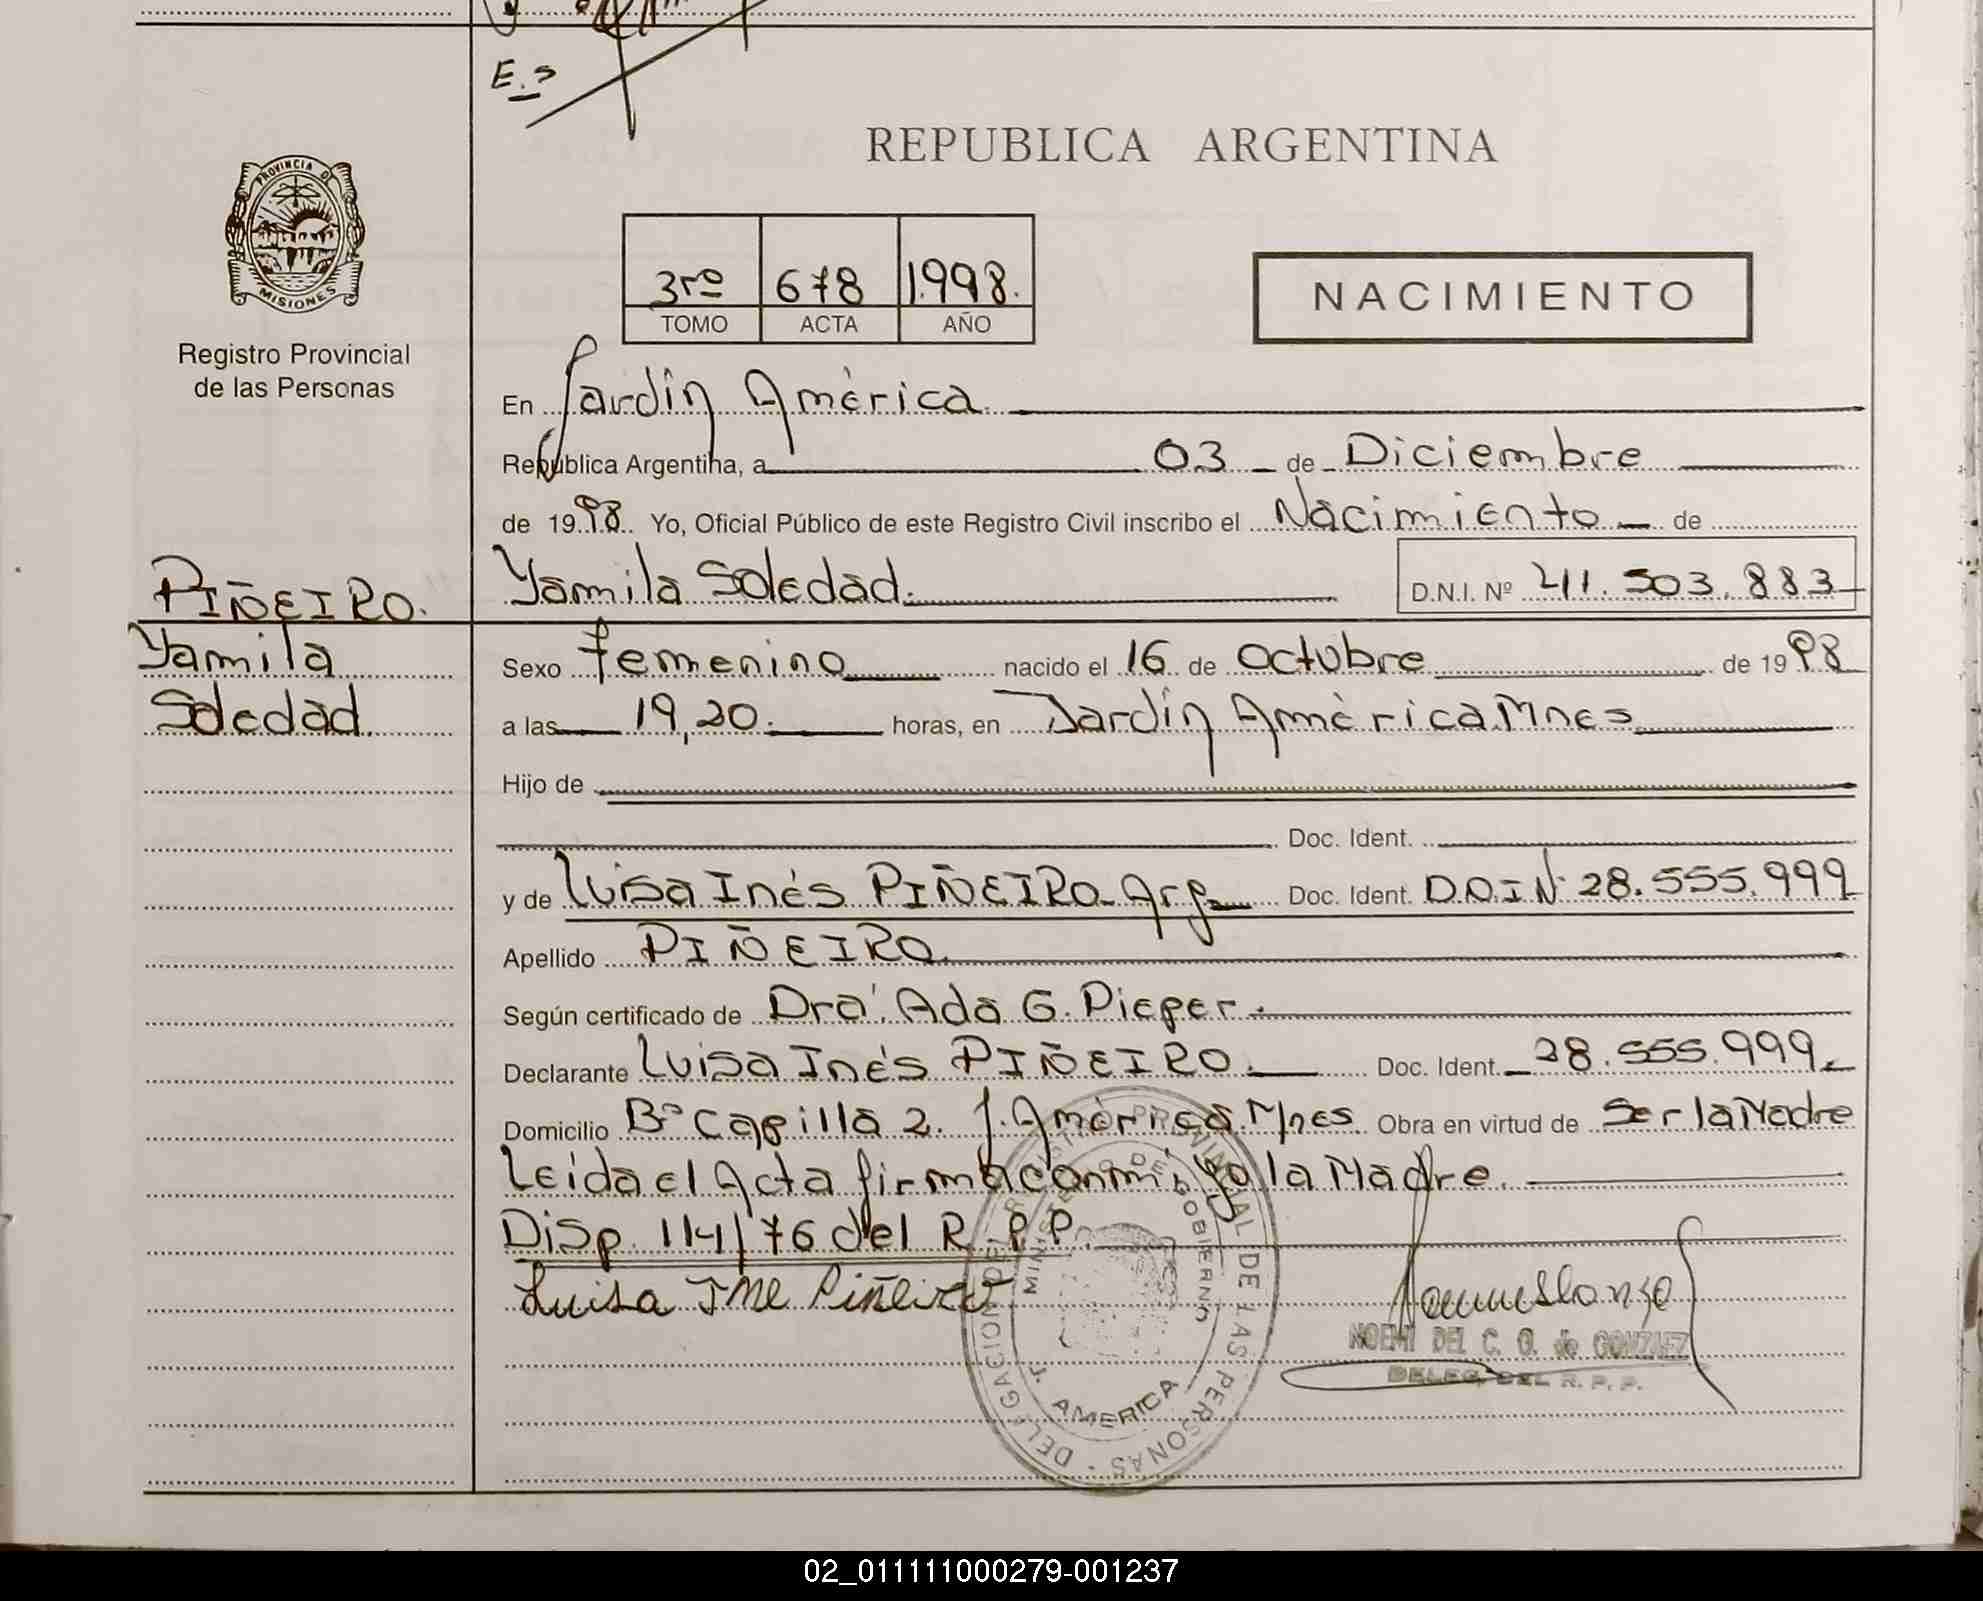 E.s
REPUBLICA ARGENTINA
PROVINCIA DE
MISIONES
Registro Provincial
de las Personas
3ro 678 1.998.
TOMO ACTA AÑO
NACIMIENTO
En Jardín América
República Argentina, a 03 de Diciembre
de 1998. Yo, Oficial Público de este Registro Civil inscribo el Nacimiento de
PIÑEIRO. Yamila Soledad. D.N.I. Nº 41.503.883
Yamila Sexo femenino nacido el 16 de octubre de 1998
Soledad. a las 19,20. horas, en Jardín América Mnes
Hijo de
Doc. Ident.
y de Luisa Inés PIÑEIRO Arg. Doc. Ident. D.N.I Nº 28.555.999
Apellido PIÑEIRO.
Según certificado de Dra. Ada G. Pieper.
Declarante Luisa Inés PIÑEIRO. Doc. Ident. 28.555.999
Domicilio Bº Capilla 2. J. América. Mnes Obra en virtud de Ser la Madre
Leída el Acta firma conmigo la Madre.
Disp. 114/76 del R.P.P.
Luisa Ine Piñeiro
NOEMI DEL C. G. de GONZALEZ
DELEG. DEL R. P. P.
DELEGACION DEL REGISTRO PROVINCIAL DE LAS PERSONAS
MINISTERIO DE GOBIERNO
J. AMERICA
02_011111000279-001237